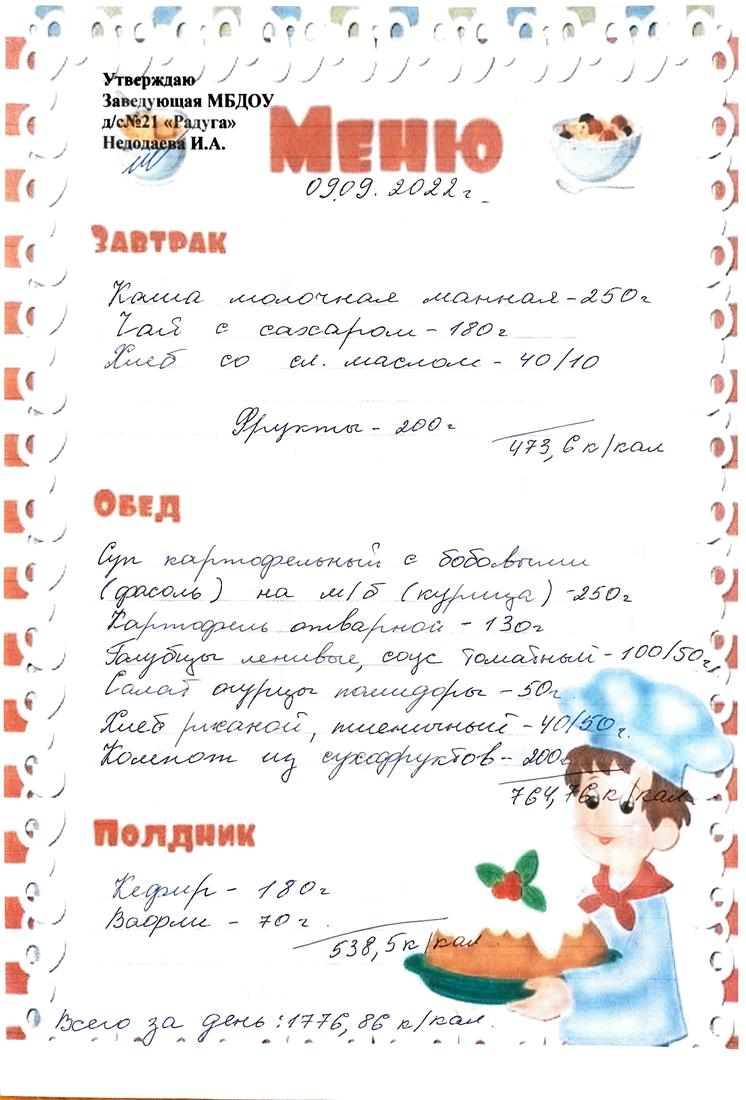 Утверждаю
Заведующая МБДОУ
д/с№21 «Радуга»
Недодаева И.А.
Меню
09.09.2022г.
Завтрак
Каша молочная манная - 250г
Чай с сахаром - 180г
Хлеб со сл. маслом - 40/10
Фрукты - 200г
473,6 к/кал
Обед
Суп картофельный с бобовыми
(фасоль) на м/б (курица) - 250г
Картофель отварной - 130г
Голубцы ленивые, соус томатный - 100/50г.
Салат огурцы помидоры - 50г
Хлеб ржаной, пшеничный - 40/50г.
Компот из сухофруктов - 200г
764,76 к/кал
Полдник
Кефир - 180г
Вафли - 70г.
538,5 к/кал.
Всего за день: 1776,86 к/кал.